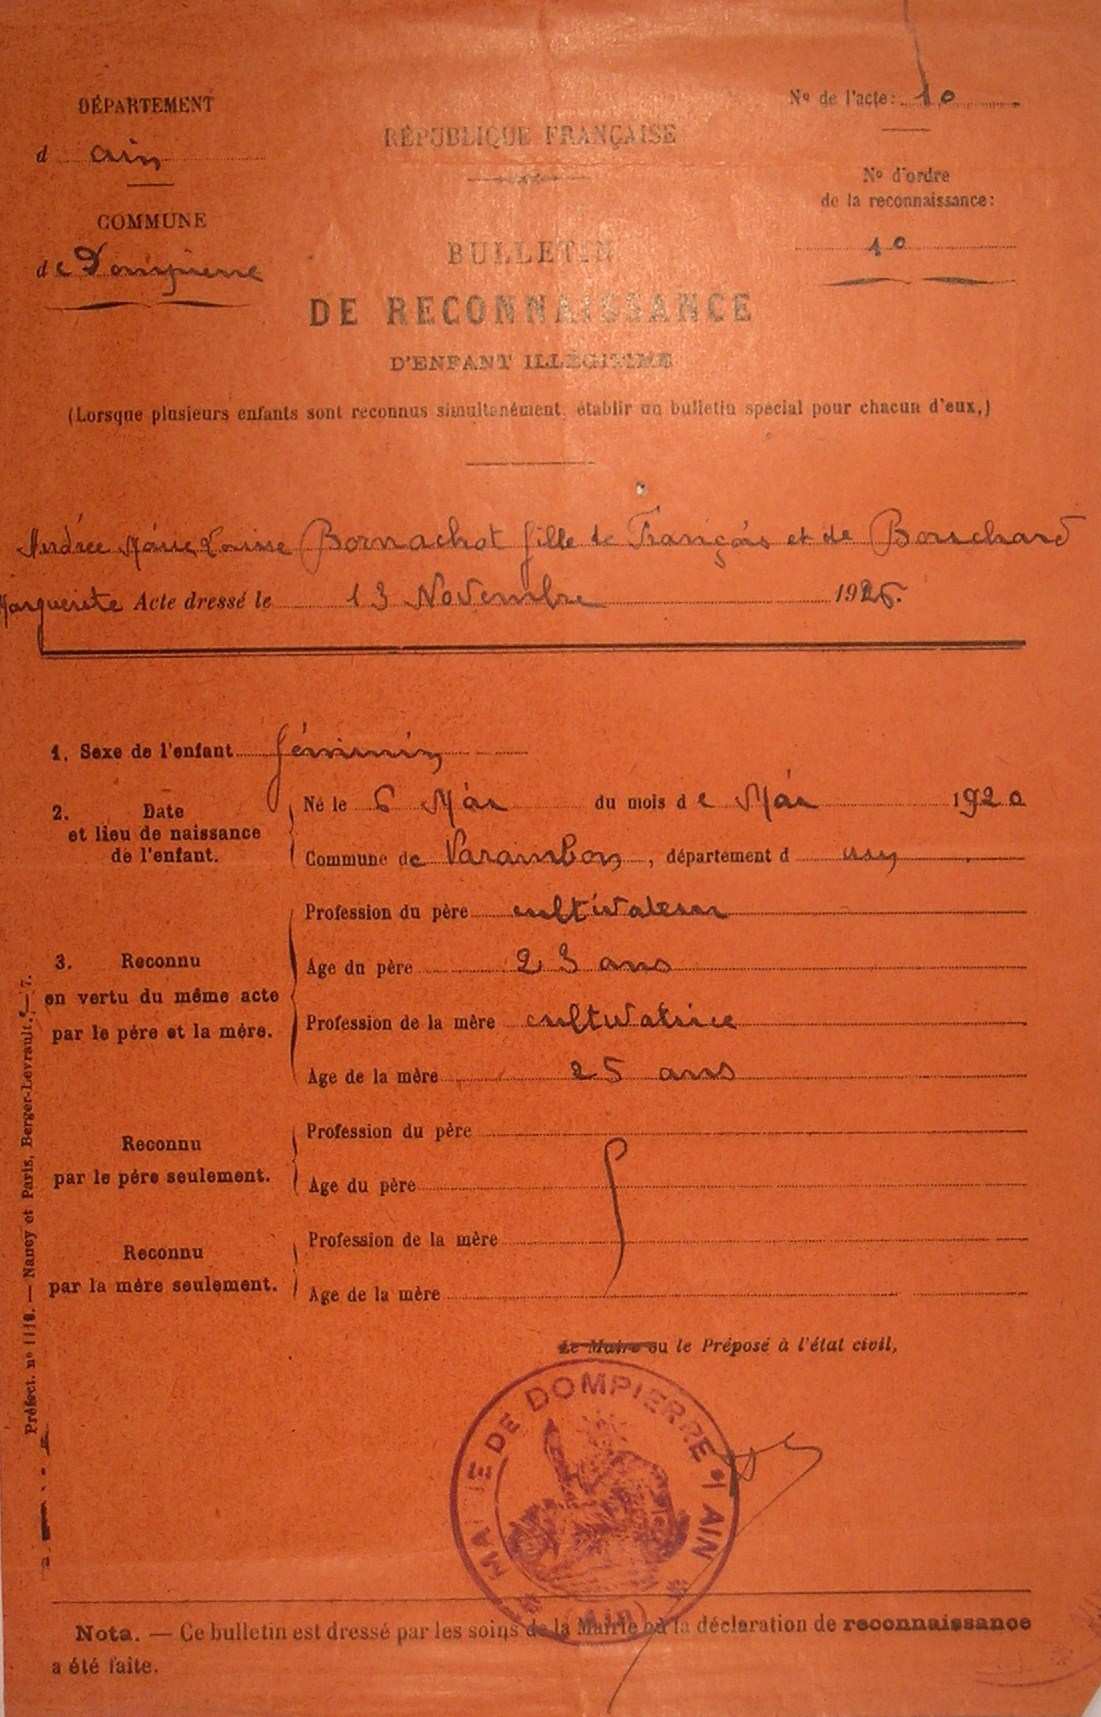 DÉPARTEMENT
d ain
COMMUNE
de Dompierre
RÉPUBLIQUE FRANÇAISE
BULLETIN
DE RECONNAISSANCE
D'ENFANT ILLÉGITIME
(Lorsque plusieurs enfants sont reconnus simultanément, établir un bulletin spécial pour chacun d'eux,)
Nº de l'acte: 10
Nº d'ordre
de la reconnaissance:
10
Andrée Marie Louise Bornachot fille de François et de Bouchard
Marguerite Acte dressé le 13 Novembre 1926.
1. Sexe de l'enfant féminin
2. Date
et lieu de naissance
de l'enfant.
Né le 6 Mai du mois de Mai 1920
Commune de Varambon, département d ain
3. Reconnu
en vertu du même acte
par le père et la mère.
Profession du père cultivateur
Age du père 23 ans
Profession de la mère cultivatrice
Age de la mère 25 ans
Reconnu
par le père seulement.
Profession du père
Age du père
Reconnu
par la mère seulement.
Profession de la mère
Age de la mère
Le Maire ou le Préposé à l'état civil,
MAIRIE DE DOMPIERRE AIN
(Ain)
Nota. — Ce bulletin est dressé par les soins de la Mairie où la déclaration de reconnaissance
a été faite.
Préfect. nº — Nancy et Paris, Berger-Levrault.